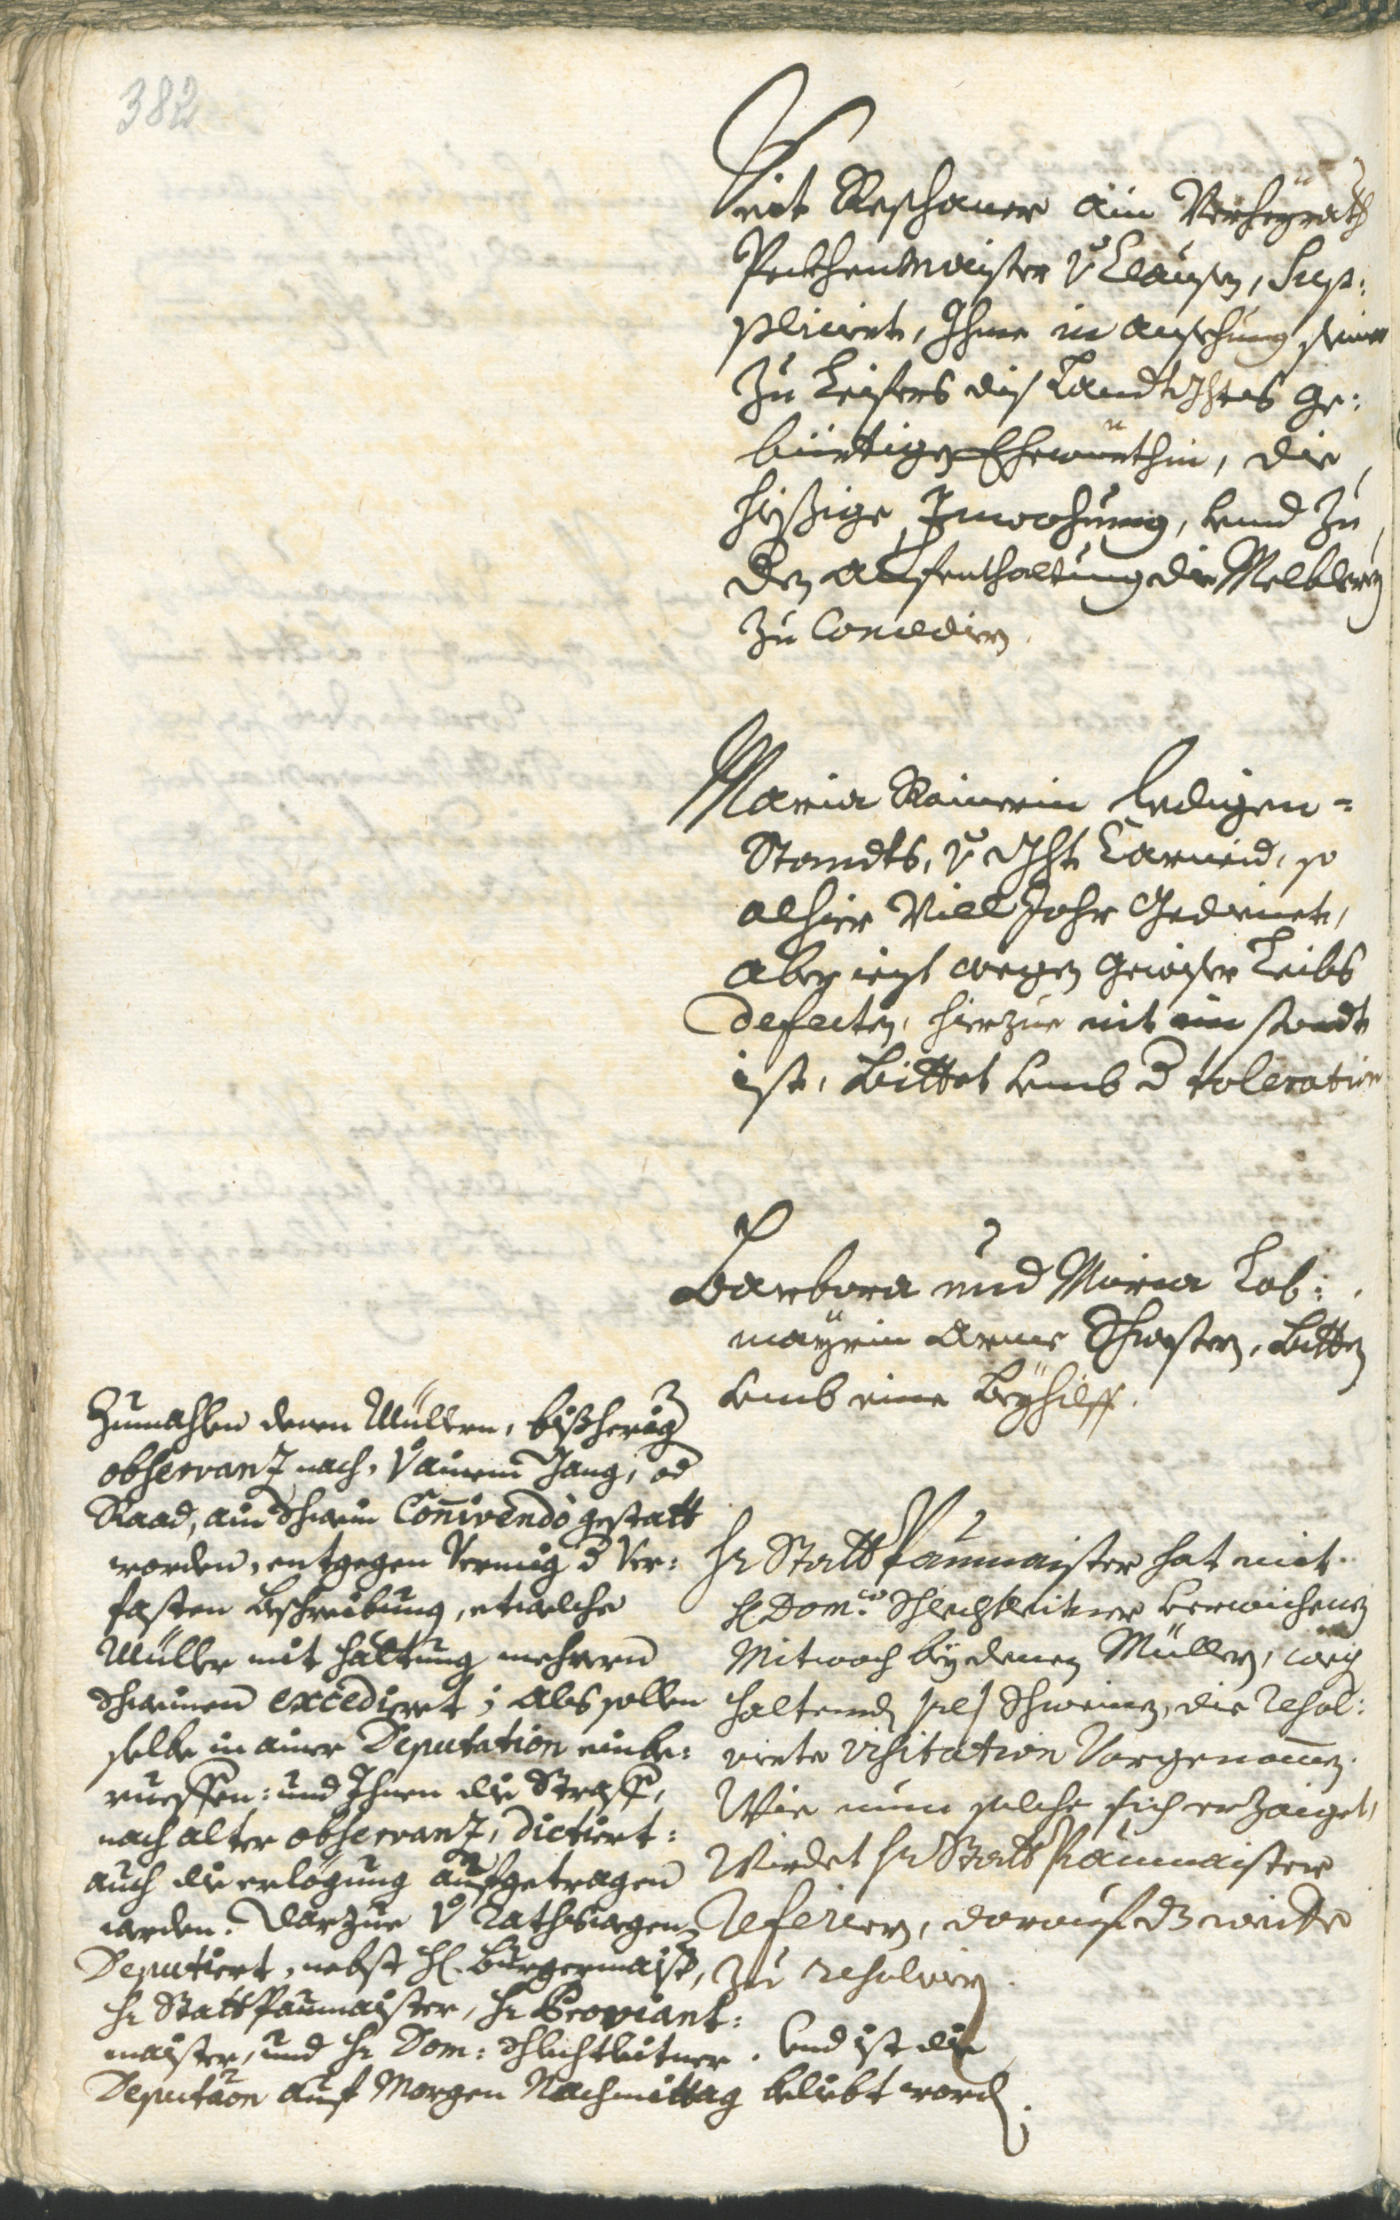 382
Veit Reschauer ain Verheyrath
Peckhenmaister v. Clausen, Sup:
plicirt, Ihme in ansehung seiner
zu Leifers diss Landtghts ge:
bürtigen Ehewürthin, die
hießige Inwohnung, und zu
den aufenthaltung die Melblerey
zu Concedirn.
Maria Rainerin ledigen=
Standts, v. Ght Carneid, so
alhier Vill Jahr Gedienet,
aber iezt wegen gewisser Leibs
defecten, hierzue nit im standt
ist, bittet umb d toleration
Barbara und Maria Lob:
mayrin arme Schwestern, bitten
umb eine Beyhilff.
Hr StattPaumaister hat mit
H Dom.co Schlechtleitner verwichenen
Mitwoch bey denen Müllern, weg
haltend sal Schweinen, die resol:
virte visitation Vorgenomen.
Wie nun solche sich erzaiget,
Würdet Hr StattPaumaister
referiern, darauf dz weitere
zu resolvirn.
Zumahlen denen Müllern, bißherig
observanz nach, v. ainem Gang, od
Raad, ain Schwein Connivendo gestatt
worden, entgegen Vermüg d Ver:
fasten Beschreibung, etwelche
Müller mit haltung mehrern
Schweinen excediret; Als sollen
selbe in ainer Deputation einbe:
rueffen: und Ihnen die Straff,
nach alter observanz, dictiert:
auch die erlögung aufgetragen
werden. Darzue v. Rathswegen
Deputiert, nebst H. Burgermaist,
Hr StattPaumaister, Hr Proviant:
maister, und Hr Dom: Schlechtleitner. Und ist die
Deputaon auf Morgen Nachmittag beliebt word.